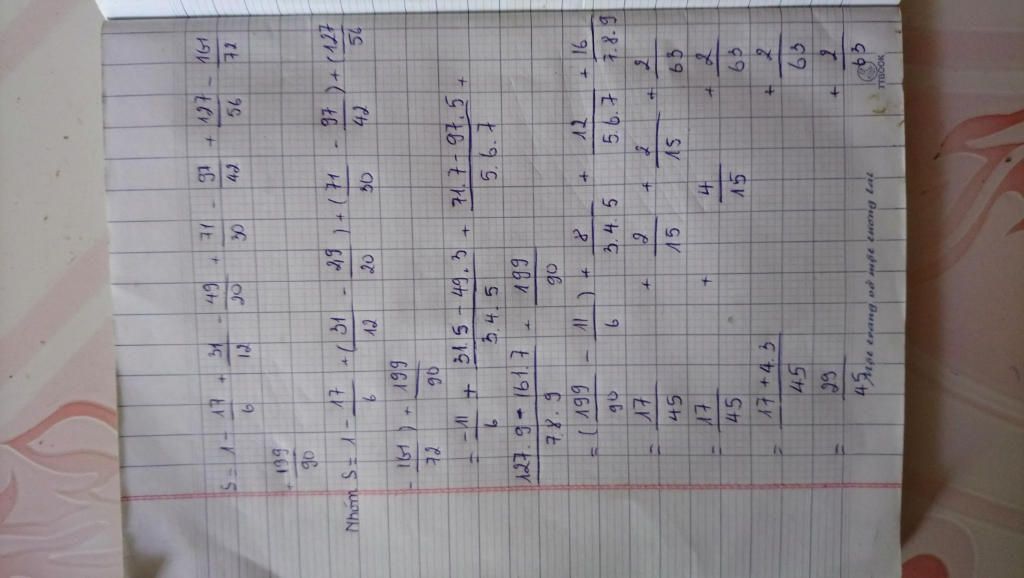 S = 1 - 17/6 + 31/12 - 49/20 + 71/30 - 97/42 + 127/56 - 161/72
+ 199/90
Nhóm S = 1 - 17/6 + (31/12 - 49/20) + (71/30 - 97/42) + (127/56
- 161/72) + 199/90
= -11/6 + 31.5 - 49.3/3.4.5 + 71.7 - 97.5/5.6.7 +
127.9 - 161.7/7.8.9 + 199/90
= (199/90 - 11/6) + 8/3.4.5 + 12/5.6.7 + 16/7.8.9
= 17/45 + 2/15 + 2/15 + 2/63
= 17/45 + 4/15 + 2/63
= 17 + 4.3/45 + 2/63
= 29/45 + 2/63